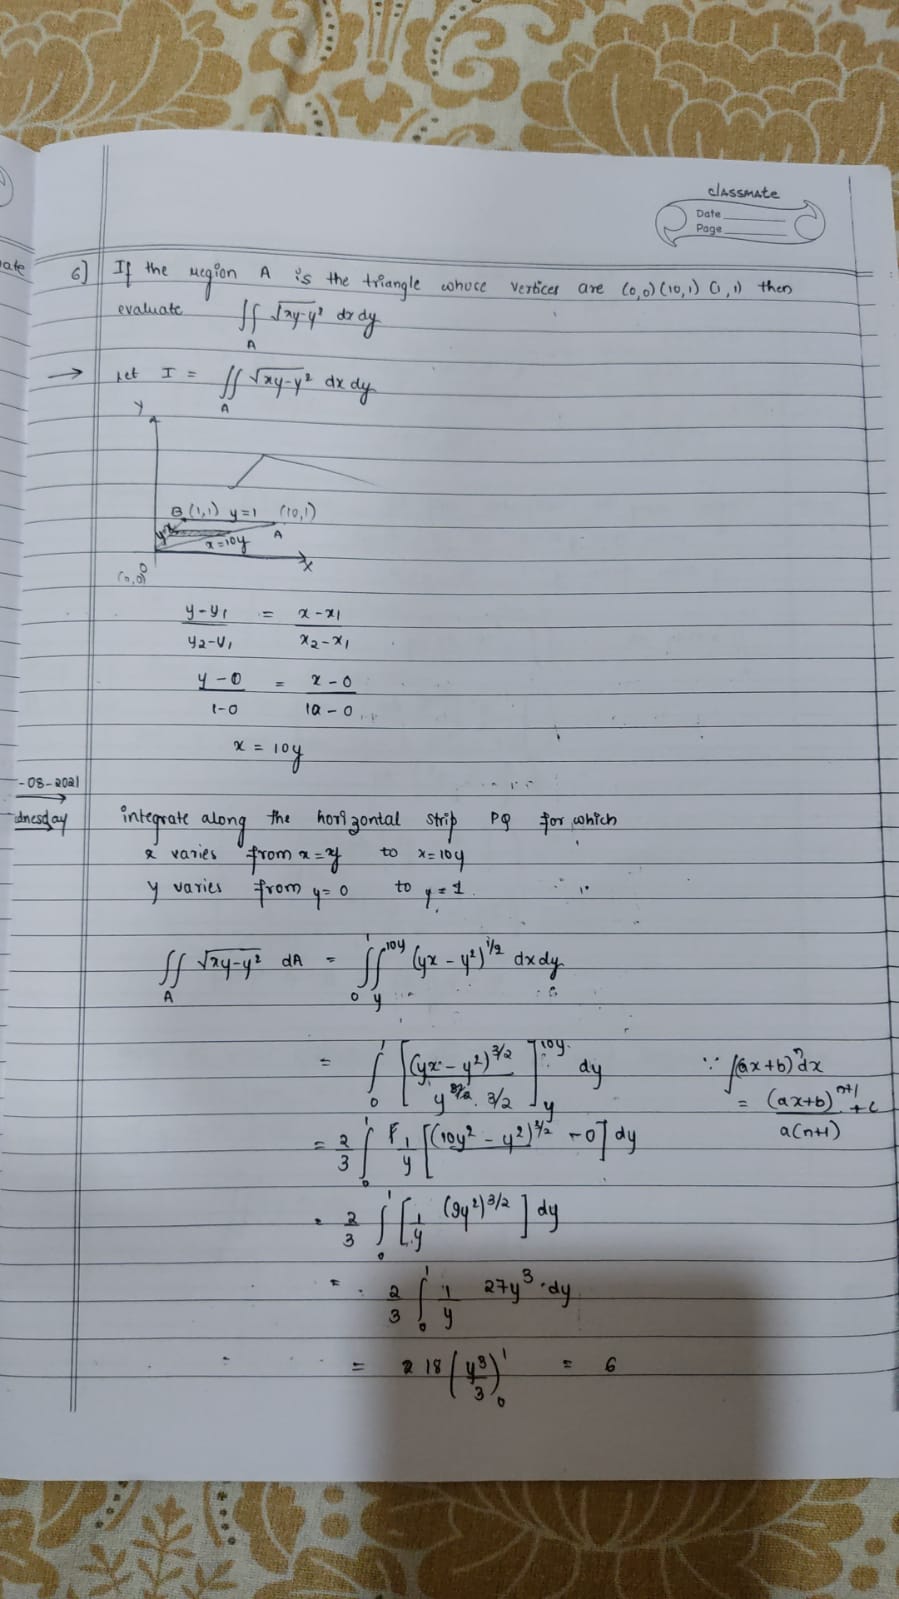 classmate
Date
Page
ate
6] If the region A is the triangle whose vertices are (0,0) (10,1) (1,1) then
evaluate ∬_A √xy-y² dx dy
→ Let I = ∬_A √xy-y² dx dy
Y
B (1,1) y=1 (10,1)
y=x x=10y A
X
(0,0) O
(y-y₁)/(y₂-y₁) = (x-x₁)/(x₂-x₁)
(y-0)/(1-0) = (x-0)/(10-0)
x = 10y
-08-2021
dnesday
integrate along the horizontal strip PQ for which
x varies from x=y to x=10y
y varies from y=0 to y=1.
∬_A √xy-y² dA = ∫₀¹ ∫_y^10y (yx - y²)^1/2 dx dy
= ∫₀¹ [(yx - y²)^3/2 / y . 3/2]_y^10y dy ∵ ∫(ax+b)^n dx
= (ax+b)^n+1 / a(n+1) + c
= 2/3 ∫₀¹ 1/y [(10y² - y²)^3/2 - 0] dy
= 2/3 ∫₀¹ [1/y (9y²)^3/2] dy
= 2/3 ∫₀¹ 1/y 27y³ . dy
= 18 (y³/3)₀¹ = 6